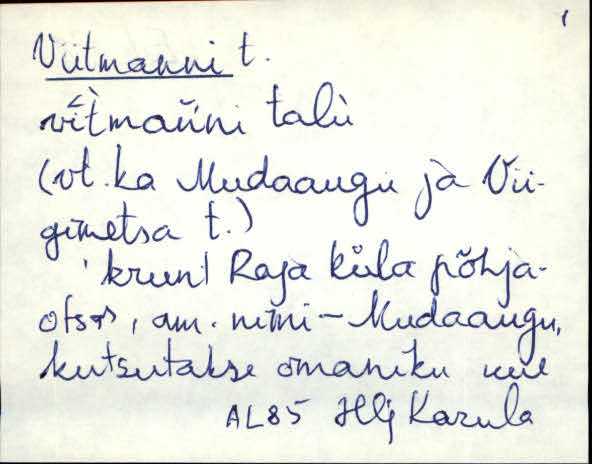 Viitmanni t.
vi̮i̮tmanni talu
(vt. ka Mudaaugu ja Vii-
gimetsa t.)
krunt Raja küla põhja-
otsas, am. nimi – Mudaaugu,
kutsutakse omaniku
AL85 Hlj Karula